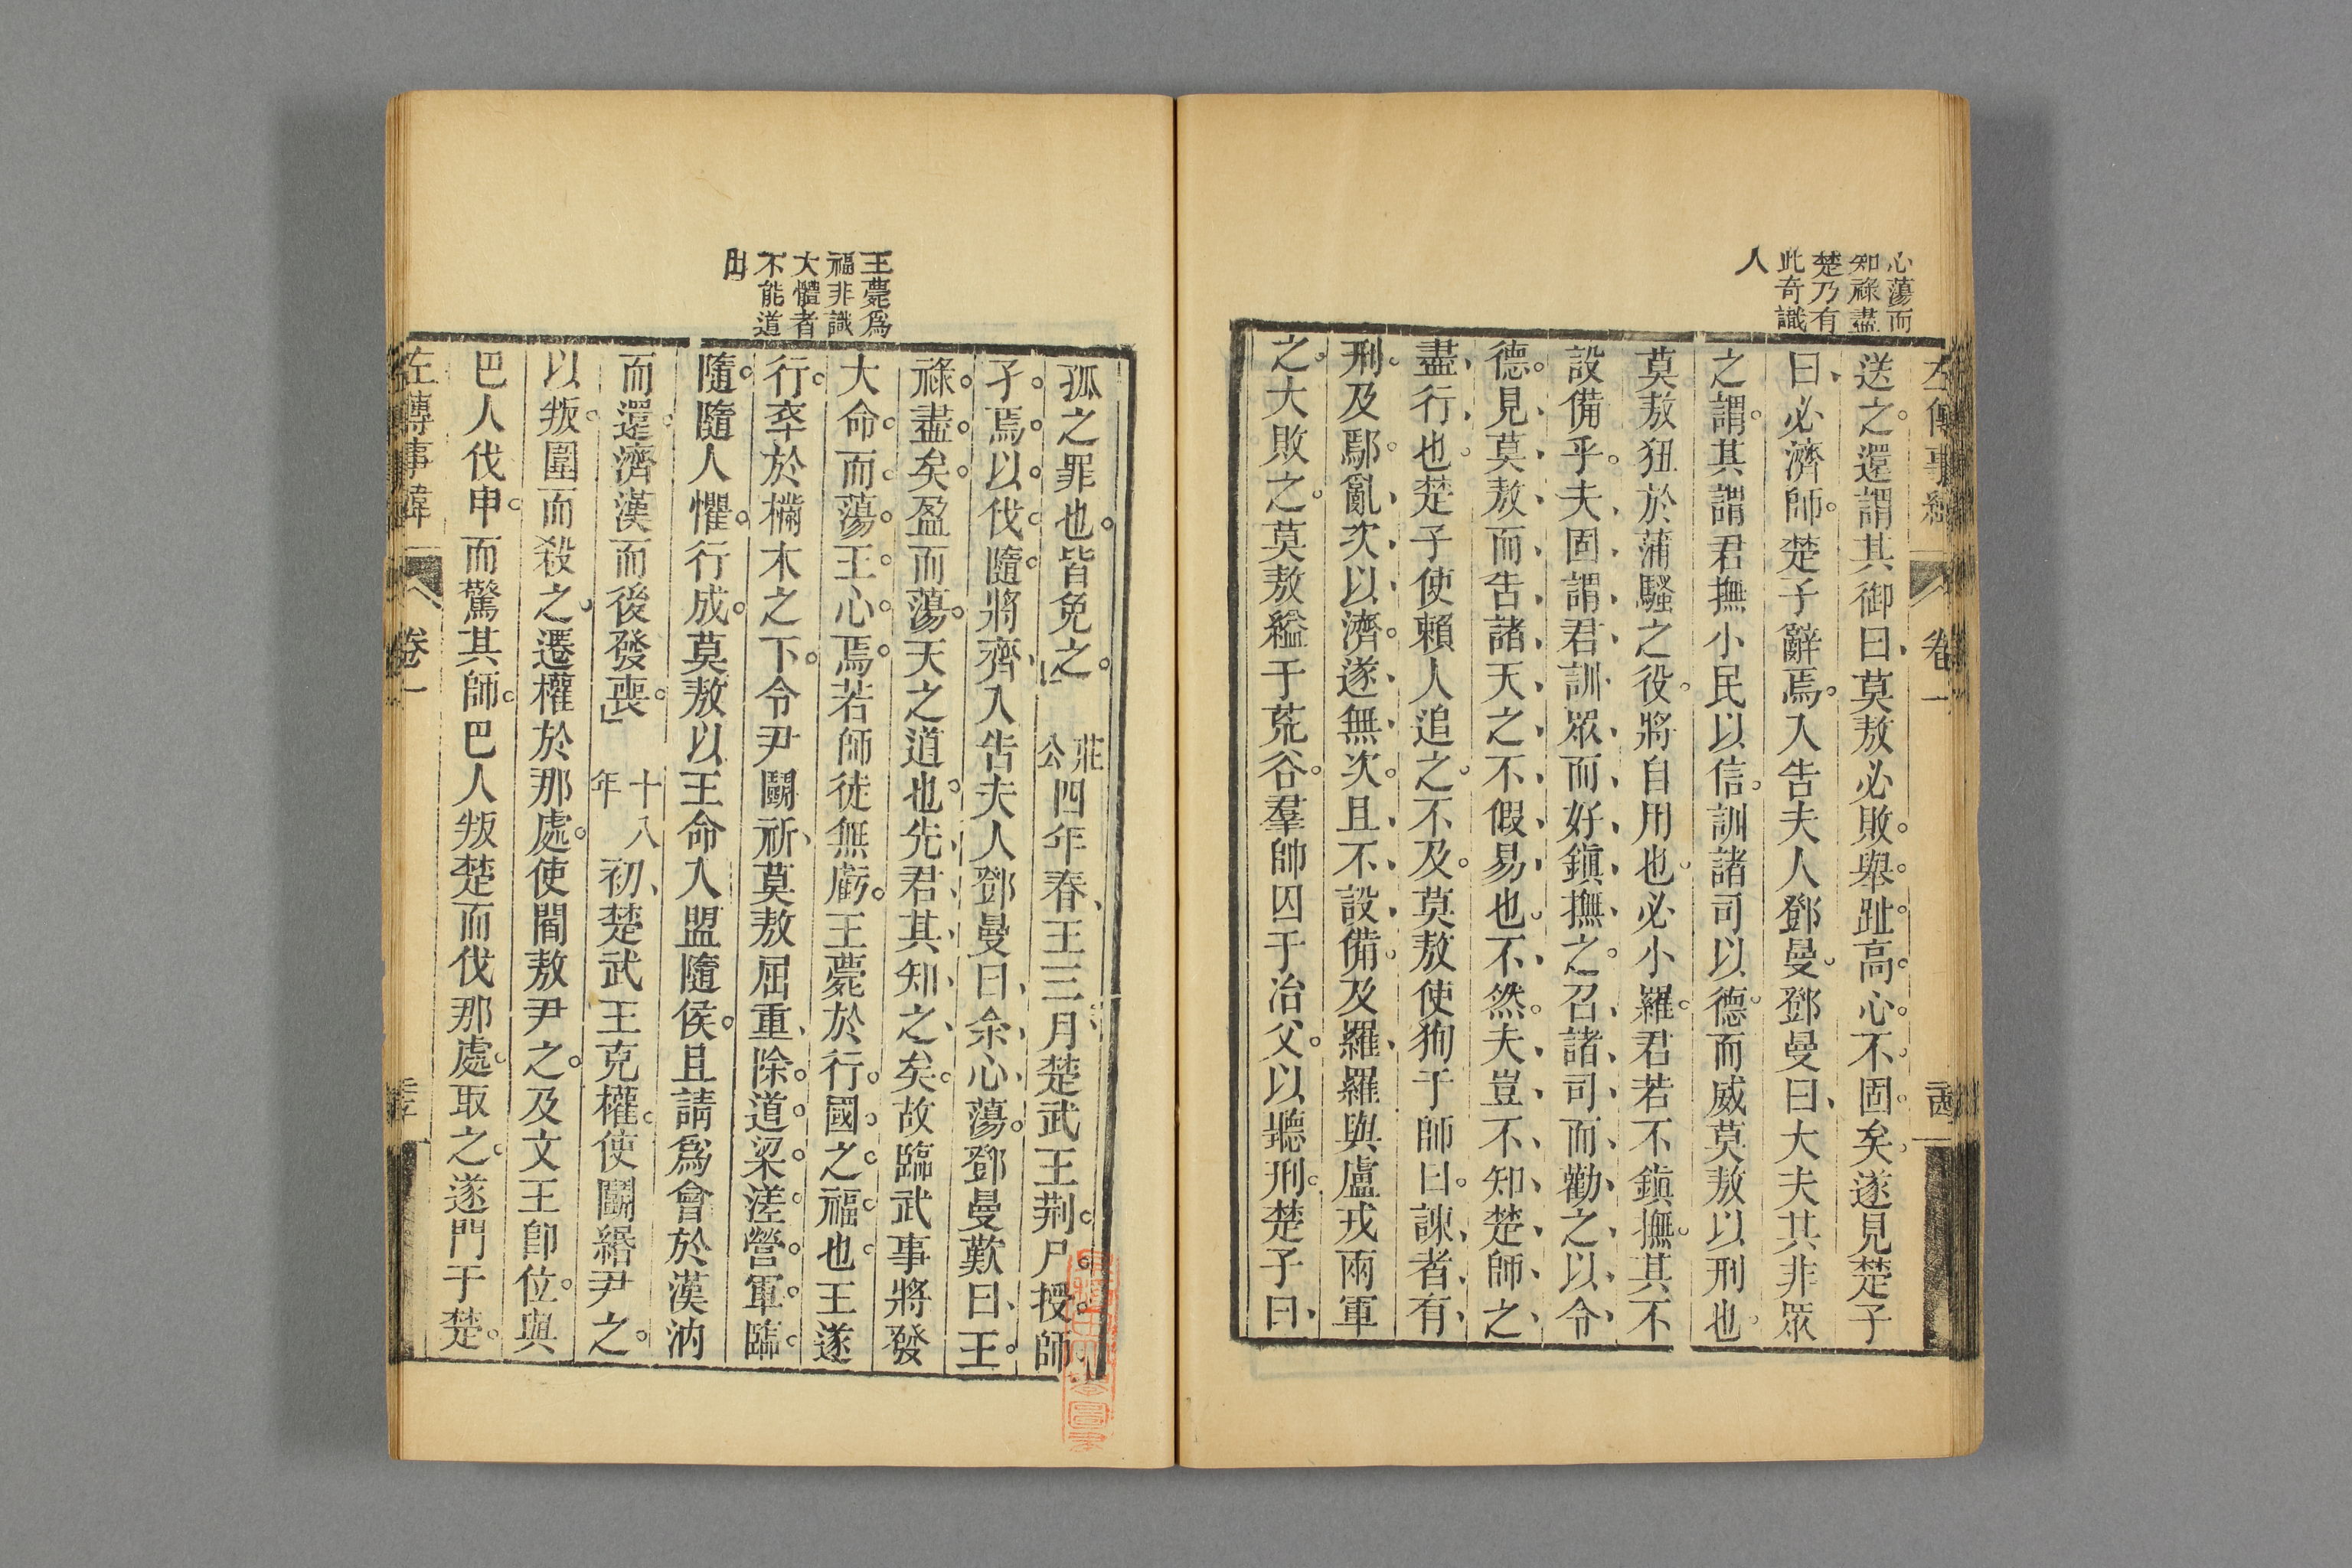 心蕩而
知祿盡
楚乃有
此奇識
人
左傳事緯
卷一
送之還謂其御曰莫敖必敗舉趾高心不固矣遂見楚子
曰必濟師楚子辭焉入告夫人鄧曼鄧曼曰大夫其非眾
之謂其謂君撫小民以信訓諸司以德而威莫敖以刑也
莫敖狃於蒲騷之役將自用也必小羅君若不鎮撫其不
設備乎夫固謂君訓眾而好鎮撫之召諸司而勸之以令
德見莫敖而告諸天之不假易也不然夫豈不知楚師之
盡行也楚子使賴人追之不及莫敖使狥于師曰諫者有
刑及鄢亂次以濟遂無次且不設備及羅羅與盧戎兩軍
之大敗之莫敖縊于荒谷羣帥囚于冶父以聽刑楚子曰
王薨爲
福非識
大體者
不能道
出
孤之罪也皆免之 莊公四年春王三月楚武王荆尸授師
孑焉以伐隨將齊入告夫人鄧曼曰余心蕩鄧曼歎曰王
祿盡矣盈而蕩天之道也先君其知之矣故臨武事將發
大命而蕩王心焉若師徒無虧王薨於行國之福也王遂
行卒於樠木之下令尹鬭祈莫敖屈重除道梁溠營軍臨
隨隨人懼行成莫敖以王命入盟隨侯且請爲會於漢汭
而還濟漢而後發喪 十八年初楚武王克權使鬭緡尹之
以叛圍而殺之遷權於那處使閻敖尹之及文王卽位與
巴人伐申而驚其師巴人叛楚而伐那處取之遂門于楚
左傳事緯
卷一